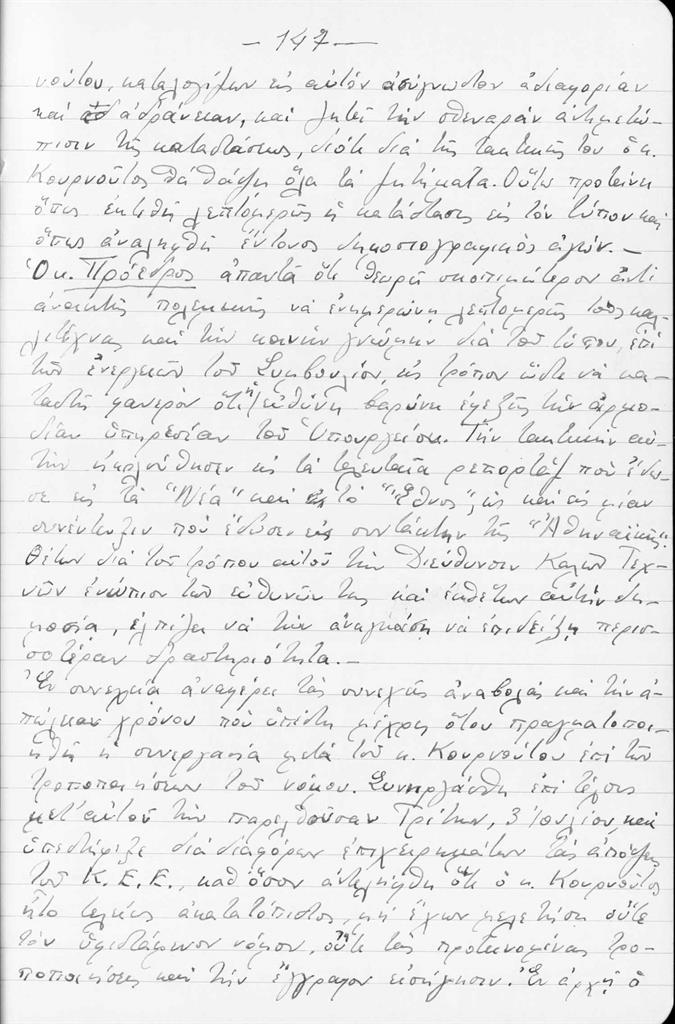 — 147 —
νούτου, καταλογίζων εἰς αὐτόν ἀσύγνωστον ἀδιαφορίαν
καί ἀδράνειαν, καί ζητεῖ τήν σθεναράν ἀντιμετώ-
πισιν τῆς καταστάσεως, διότι διά τῆς τακτικῆς του ὁ κ.
Κουρνοῦτος θά θάψῃ ὅλα τά ζητήματα. Οὕτω προτείνει
ὅπως ἐκτεθῇ λεπτομερῶς ἡ κατάστασις εἰς τόν τύπον καί
ὅπως ἀναληφθῇ ἔντονος δημοσιογραφικός ἀγών. —
Ὁ κ. Πρόεδρος ἀπαντᾶ ὅτι θεωρεῖ σκοπιμώτερον ἀντί
ἀνοικτῆς πολεμικῆς νά ἐνημερώνῃ λεπτομερῶς τούς καλ-
λιτέχνας καί τήν κοινήν γνώμην διά τοῦ τύπου, ἐπί
τῶν ἐνεργειῶν τοῦ Συμβουλίου, εἰς τρόπον ὥστε νά κα-
ταστῇ φανερόν ὅτι ἡ εὐθύνη βαρύνει ἐφεξῆς τήν ἁρμο-
δίαν ὑπηρεσίαν τοῦ Ὑπουργείου. Τήν τακτικήν αὐ-
τήν ἠκολούθησεν εἰς τά τελευταῖα ρεπορτάζ πού ἔδω-
σε εἰς τά "Νέα" καί τό "Ἔθνος", ὡς καί εἰς μίαν
συνέντευξιν πού ἔδωσε εἰς συντάκτην τῆς "Ἀθηναϊκῆς".
Θέτων διά τοῦ τρόπου αὐτοῦ τήν Διεύθυνσιν Καλῶν Τεχ-
νῶν ἐνώπιον τῶν εὐθυνῶν της καί ἐκθέτων αὐτήν δη-
μοσίᾳ, ἐλπίζει νά τήν ἀναγκάσῃ νά ἐπιδείξῃ περισ-
σοτέραν δραστηριότητα. —
Ἐν συνεχείᾳ ἀναφέρει τάς συνεχεῖς ἀναβολάς καί τήν ἀ-
πώλειαν χρόνου πού ὑπέστη μέχρις ὅτου πραγματοποι-
ηθῇ ἡ συνεργασία μετά τοῦ κ. Κουρνούτου ἐπί τῶν
τροποποιήσεων τοῦ νόμου. Συνειργάσθη ἐπί τέλους
μετ' αὐτοῦ τήν παρελθοῦσαν Τρίτην, 3 Ἰουλίου, καί
ὑπεστήριξε διά διαφόρων ἐπιχειρημάτων τάς ἀπόψεις
τοῦ Κ.Ε.Ε., καθ' ὅσον ἀντελήφθη ὅτι ὁ κ. Κουρνοῦτος
ἦτο τελείως ἀκατατόπιστος, μή ἔχων μελετήσῃ οὔτε
τόν ὑφιστάμενον νόμον, οὔτε τάς προτεινομένας τρο-
ποποιήσεις καί τήν ἔγγραφον εἰσήγησιν. Ἐν ἀρχῇ ὁ